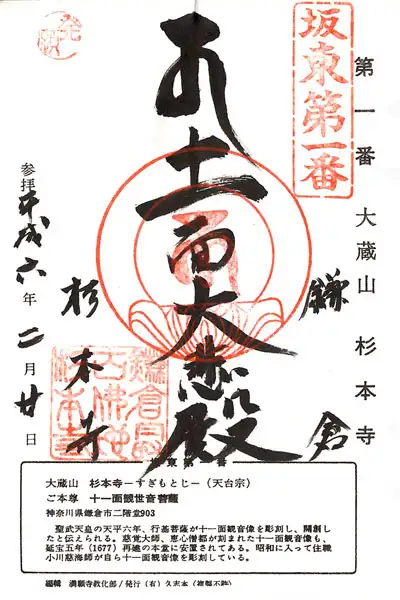 発願
坂東第一番
第一番 大蔵山 杉本寺
十一面大悲殿
鎌倉
杉本寺
参拝 平成六年二月廿日
坂東第一番
大蔵山 杉本寺−すぎもとじ−（天台宗）
ご本尊 十一面観世音菩薩
神奈川県鎌倉市二階堂903
聖武天皇の天平六年、行基菩薩が十一面観音像を彫刻し、開創し
たと伝えられる。慈覚大師、恵心僧都が刻まれた十一面観音像も、
延宝五年（1677）再建の本堂に安置されてある。昭和に入って住職
小川慈海師が自ら十一面観音像を彫刻している。
編輯 満願寺教化部/発行（有）久志本（複製不許）